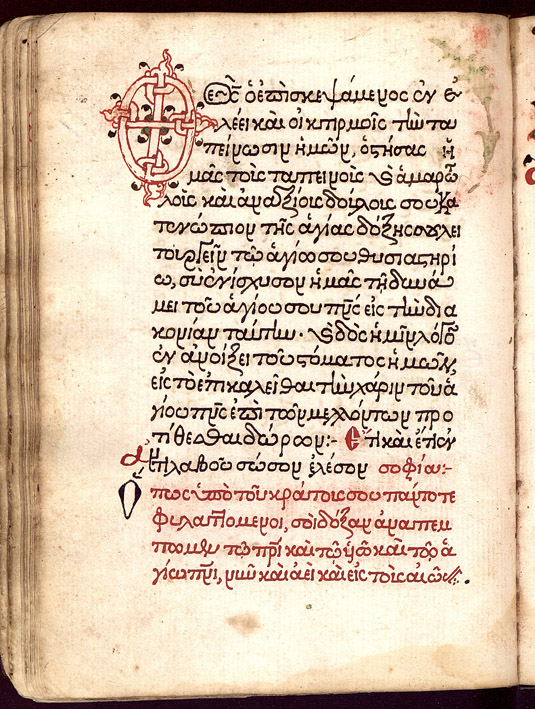 Θεὸς ὁ ἐπισκεψάμενος ἐν ἐ
λέει καὶ οἰκτιρμοῖς τὴν τα
πείνωσιν ἡμῶν, ὁ στήσας ἡ
μᾶς τοὺς ταπεινοὺς καὶ ἁμαρτω
λοὺς καὶ ἀναξίους δούλους σου κα
τενώπιον τῆς ἁγίας δόξης σου λει
τουργεῖν τῷ ἁγίῳ σου θυσιαστηρί
ῳ, σὺ ἐνίσχυσον ἡμᾶς τῇ δυνά
μει τοῦ ἁγίου σου πνς εἰς τὴν δια
κονίαν ταύτην. καὶ δὸς ἡμῖν λόγον
ἐν ἀνοίξει τοῦ στόματος ἡμῶν,
εἰς τὸ ἐπικαλεῖσθαι τὴν χάριν τοῦ ἁ
γίου πνς ἐπὶ τῶν μελλόντων προ
τίθεσθαι δώρων:- Ἔτι καὶ ἔτι ἐν
ἀντιλαβοῦ σῶσον ἐλέησον σοφία:-
πως ὑπὸ τοῦ κράτους σου πάντοτε
φυλαττόμενοι, σοὶ δόξαν ἀναπέμ
πομεν τῷ πρὶ καὶ τῷ υἱῷ καὶ τῷ ἁ
γίῳ πνι, νῦν καὶ ἀεὶ καὶ εἰς τοὺς αἰῶν.